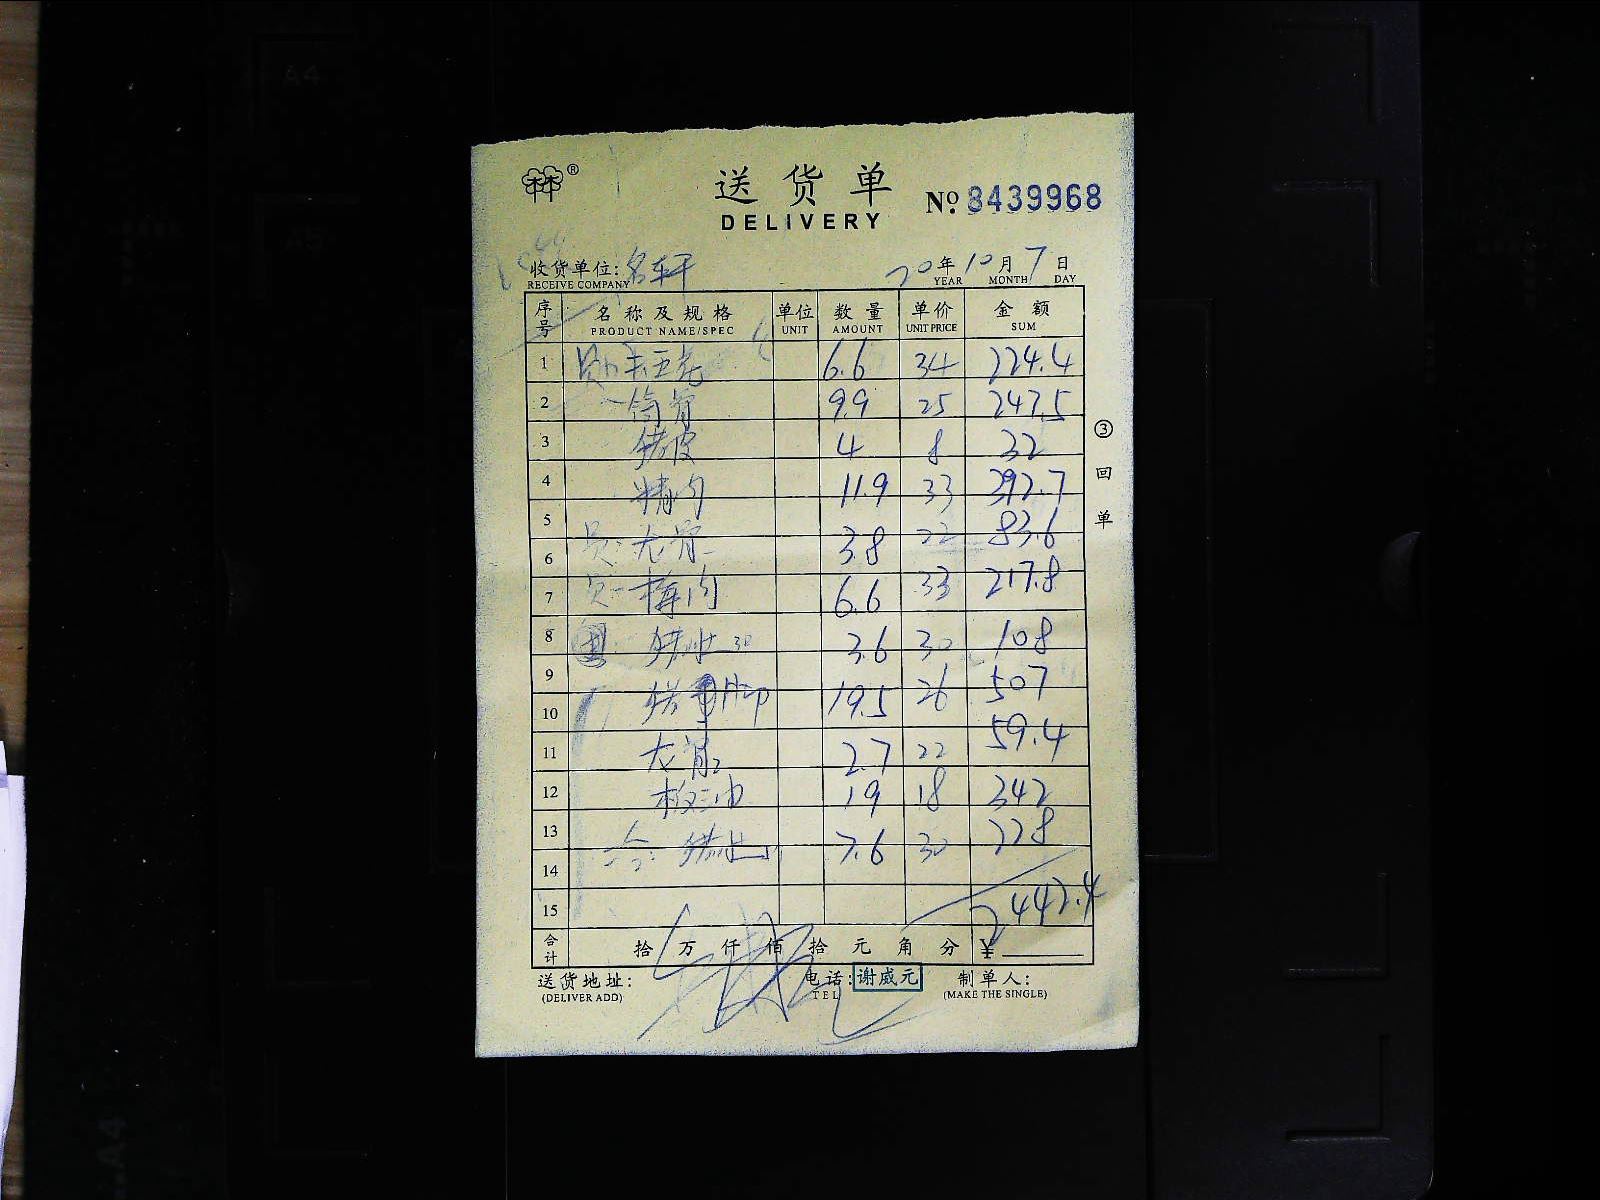 A4
A5
林®
送货单
DELIVERY
№ 8439968
收货单位: 名轩
RECEIVE COMPANY
20年10月7日
YEAR MONTH DAY
序号 名称及规格 单位 数量 单价 金额
PRODUCT NAME/SPEC UNIT AMOUNT UNIT PRICE SUM
1 6.6 34 224.4
2 筒骨 9.9 25 247.5
3 猪皮 4 8 32
4 精肉 11.9 33 392.7
5 22 83.6
6 员: 龙骨 3.8
7 员: 梅肉 6.6 33 217.8
8 猪肚 30 3.6 30 108
9 26 507
10 猪 19.5
11 龙骨 2.7 22 59.4
12 板油 19 18 342
13 猪肚 7.6 30 228
14
15 2442.4
合计 拾万仟佰拾元角分 ¥
③回单
送货地址: 电话: 谢威元 制单人:
(DELIVER ADD) TEL (MAKE THE SINGLE)
A4